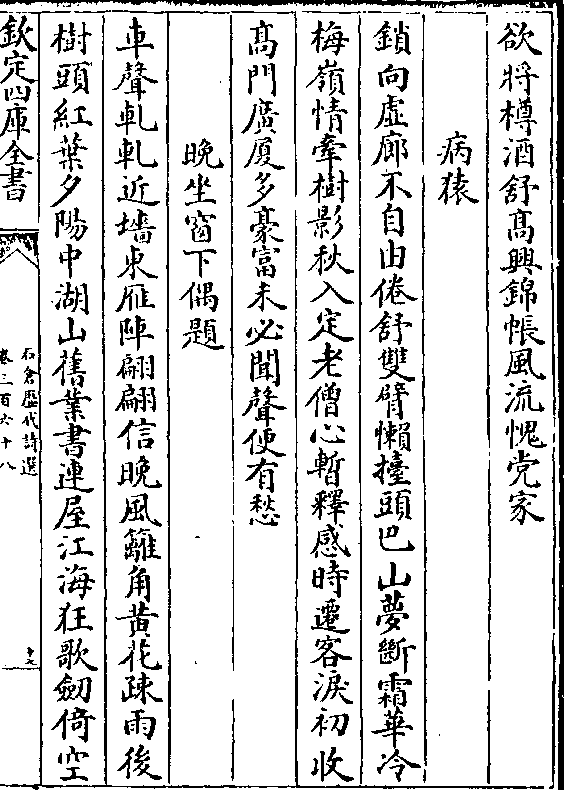 欲將樽酒舒髙興錦帳風流愧党家
病猿
鎖向虚廊不自由倦舒雙臂懶擡頭巴山夢斷霜華冷
梅嶺情牽樹影秋入定老僧心暫釋感時遷客淚初收
髙門廣厦多豪富未必聞聲便有愁
晚坐窗下偶題
車聲軋軋近墻東雁陣翩翩信晚風籬角黄花疎雨後
樹頭紅葉夕陽中湖山舊業書連屋江海狂歌劒倚空
欽定四庫全書
石倉歴代詩選
卷三百六十八